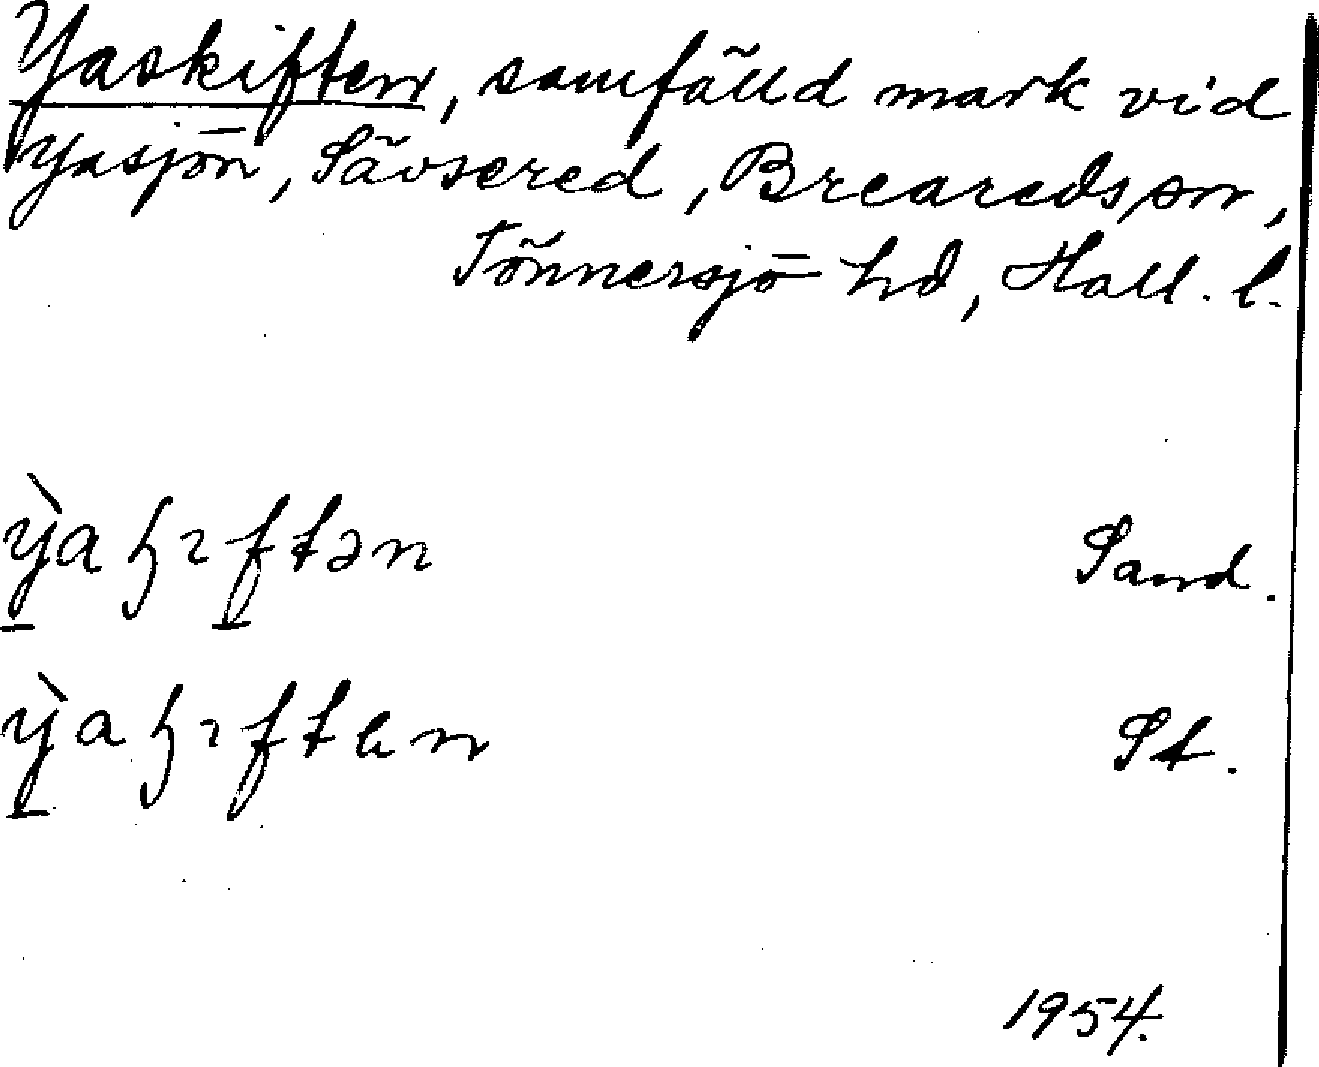 Yaskiften, samfälld mark vid
Yasjön, Sävsered, Breareds sn,
Tönnersjö hd, Hall. l.
ỳaɧɿftən Sand.
ỳaɧɿftɐn St.
1954.